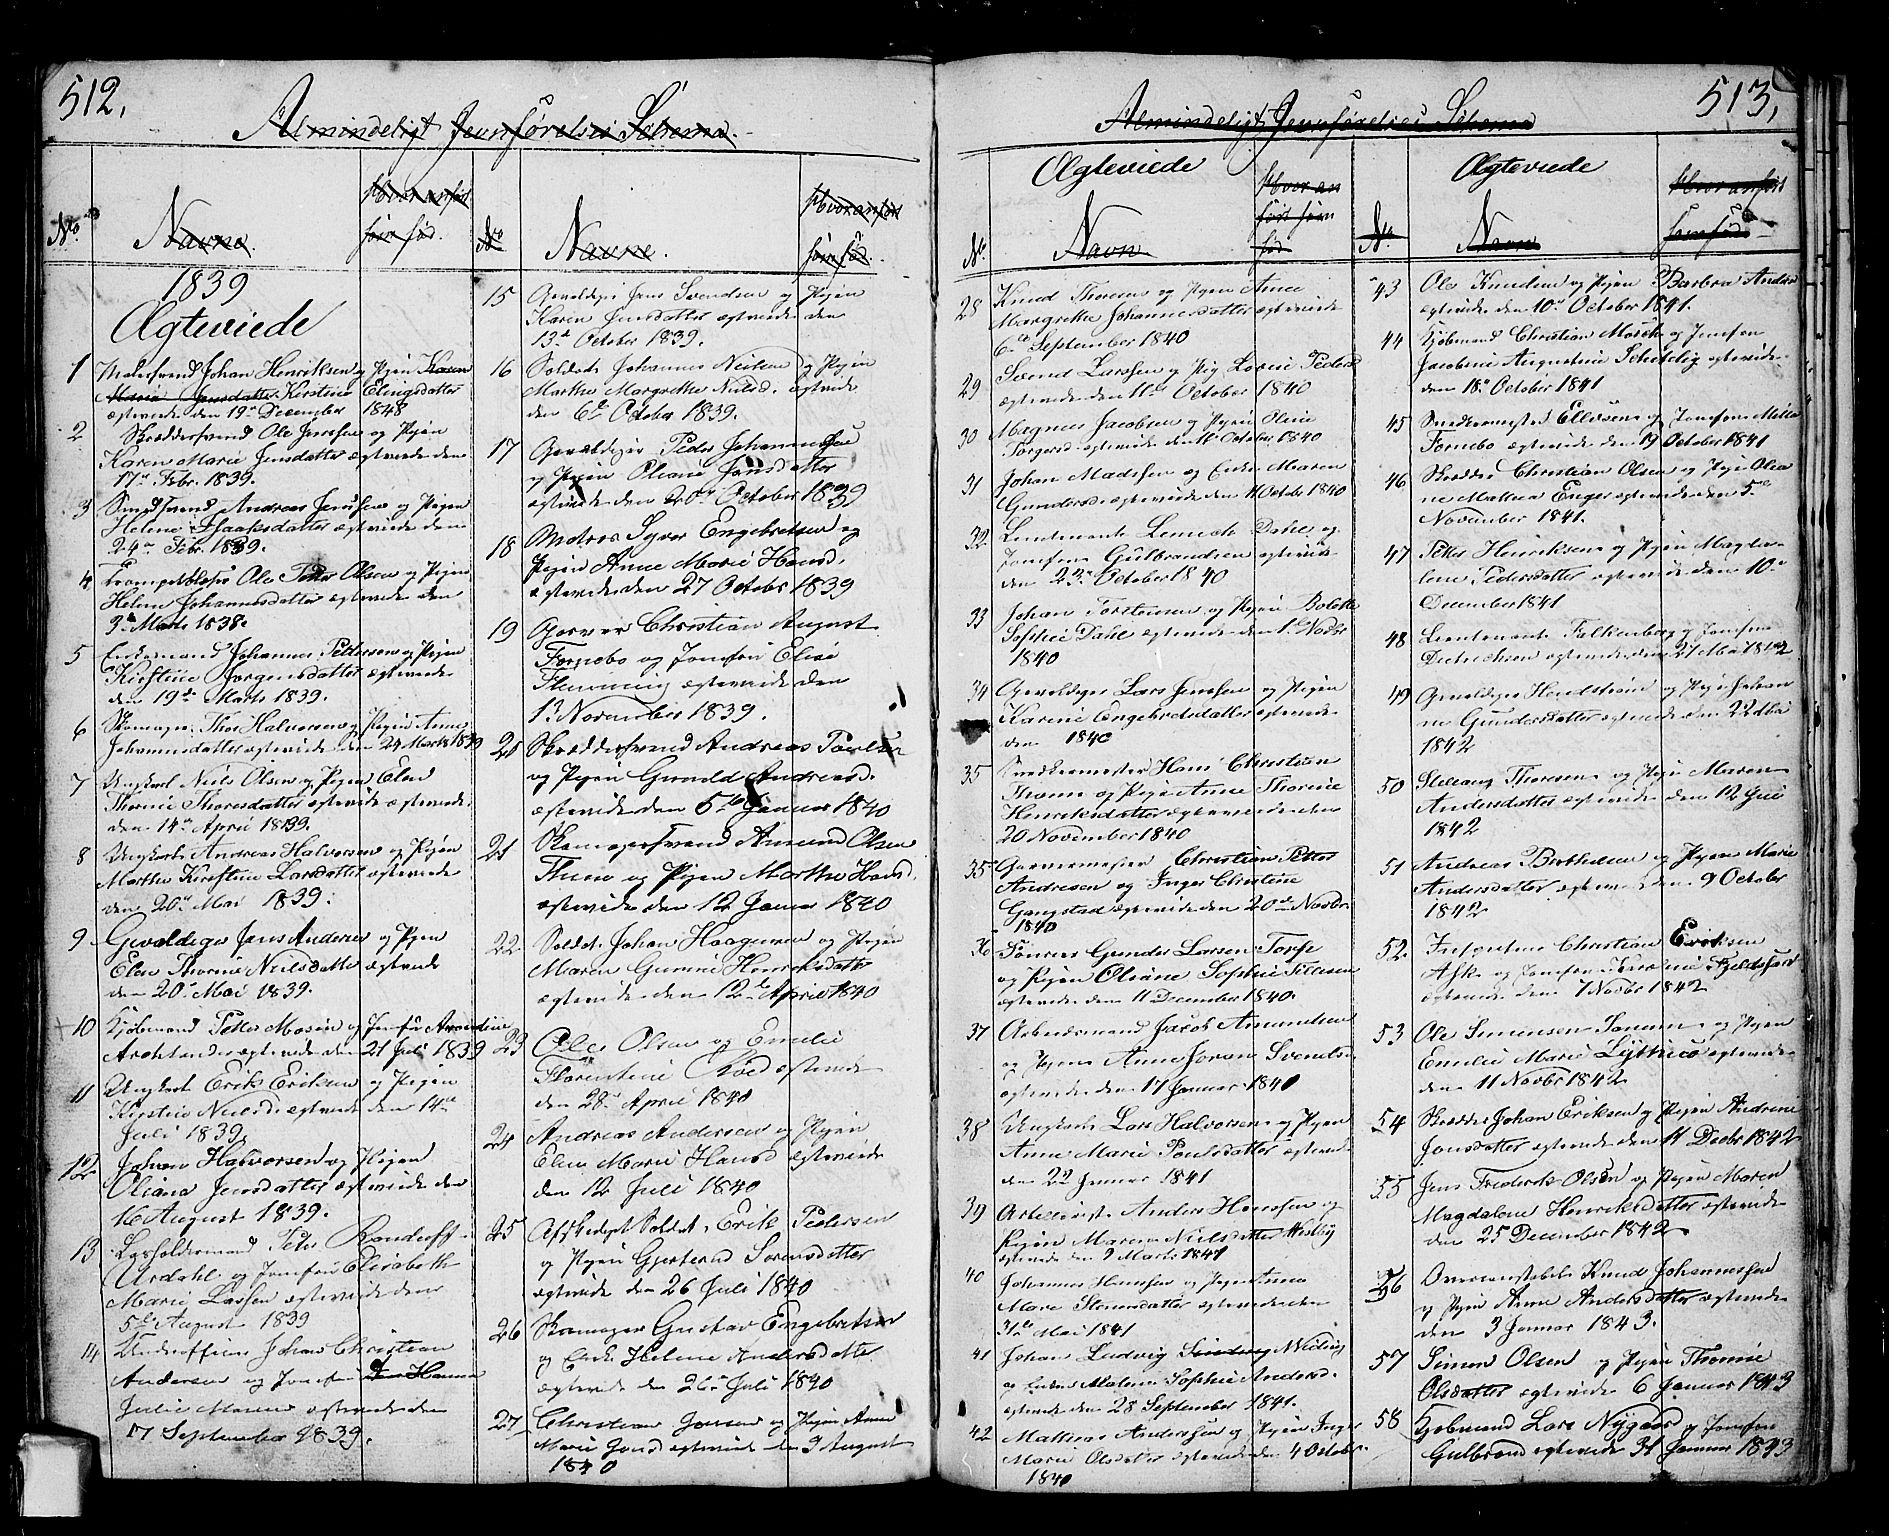 512.
Almindeligt Jevnførelses Schema.
No Navne. Hvor anført som fød.
1839
Ægteviede
1 Malersvend Johan Henriksen og Pigen Karen
Maria Jensdatter Kirstine Elingsdatter
ægteviede den 19de December 1848
2 Skræddersvend Ole Jensen og Pigen
Karen Marie Jensdatter ægteviede den
17de Febr. 1839.
3 Smedsvend Andreas Jensen og Pigen
Helene Isaaksdatter ægteviede den
24de Febr. 1839.
4 Trompetblæser Ole Peter Olsen og Pigen
Helene Johannesdatter ægteviede den
3de Marts 1838.
5 Enkemand Johannes Pettersen og Pigen
Kirstine Jørgensdatter ægteviede
den 19de Marts 1839.
6 Skomager Thor Halvorsen og Pigen Anne
Johannesdatter ægteviede den 24 Marts 1839
7 Ungkarl Niels Olsen og Pigen Elen
Thorine Thoresdatter ægteviede ægteviede
den 14de April 1839.
8 Ungkarl Andreas Halvorsen og Pigen
Marthe Kirstine Larsdatter ægteviede
den 20de Mai 1839.
9 Gevaldiger Jens Andersen og Pigen
Elen Thorine Nielsdatter ægteviede
den 20de Mai 1839.
10 Kjøbmand Petter Mosein og Jomfru Arentine
ægteviede den 21 Juli 1839
11 Ungkarl Erik Eriksen og Pigen
Kirstine Nielsd. ægteviede den 14de
Juli 1839.
12 Johan Halvorsen og Pigen
Oliana Jensdatter ægteviede den
16 August 1839.
13 Peter Randulff
Urdahl og Jomfru Elisabeth
Marie Lassen ægteviede den
5de August 1839
14 Underofficier Johan Christian
Andersen og Jomfru Hanna
Julie ægteviede den
17 September 1839.
No Navne. Hvor anført som fød.
15 Gevaldiger Jens Svendsen og Pigen
Karen Jensdatter ægteviede den
13de October 1839.
16 Soldat Johannes Nielsen og Pigen
Marthe Margrethe Nielsd. ægteviede
den 6de Octoba 1839.
17 Gevaldiger Peder Johannessen
og Pigen Oliane Jansdatter
ægteviede den 20de October 1839
18 Matros Syver Engebretsen og
Pigen Anne Marie Hansd.
ægteviede den 27 Octobr 1839
19 Garver Christian August
Fornebo og Jomfru Elise
Flemming ægteviede den
13 November 1839.
20 Skræddersvend Andreas Paulsen
og Pigen Gunild Andreasd.
ægteviede den 5te Januar 1840
21 Skomagersvend Amund Olsen
Thune og Pigen Marthe Hansd.
ægteviede den 12 Januar 1840
22 Soldat Johan Haagensen og Pigen
Maren Gurine Henriksdatter
ægteviede den 12te April 1840
23 Peder Olsen og Emilie
Florentine Roed ægteviede
den 28de April 1840
24 Andreas Andersen og Pigen
Elen Marie Hansd ægteviede
den 12 Juli 1840
25 Afskediget Soldat Erik Pedersen
og Pigen Gjertrud Sørensdatter
ægteviede den 26 Juli 1840
26 Skomager Gustav Engebretsen
og Enke Helene Andersdatter
ægteviede den 26de Juli 1840
27 Christian Jensen og Pigen Anne
Marie Jensd ægteviede den 9 August
1840
513.
Almindeligt Jevnførelses Schema
Ægteviede
No. Navn Hvor anført som fød
28 Knud Thoresen og Pigen Anne
Margrethe Johannesdatter ægteviede
6te September 1840
29 Svend Larssen og Pig Lovise Pedersd
ægteviede den 11te October 1840
30 Magnus Jacobsen og Pigen Oline
Torgersd. ægteviede den 11te October 1840
31 Johan Madssen og Enke Maren
Gundersd. ægteviede den 11 Octobr 1840
32 Lieutenant Lemich Dahl og
Jomfru Gulbrandsen ægteviede
den 23de October 1840
33 Johan Torstensen og Pigen Bolette
Sophie Dahl ægteviede den 1ste Novbr
1840
34 Gevaldiger Lars Jenssen og Pigen
Karine Engebretsdatter ægteviede
den 1840
35 Snedkermester Hans Christian
Thom og Pigen Anne Thorine
Henriksdatter ægteviede den
20 November 1840
35 Garvermester Christian Petter
Andresen og Inger Christine
Gangstad ægteviede den 20de Novbr
1840
36 Tønner Gunder Larsen Torp
og Pigen Oliane Sophie Tillesen
ægteviede den 11 December 1840.
37 Arbeidsmand Jacob Amundsen
og Pigen Anne Joran Svendsd.
ægteviede den 17 Januar 1840
38 Ungkarl Lars Halvorsen og Pigen
Anne Marie Poulsdatter ægteviede
den 22de Januar 1841
39 Artillerist Anders Hanssen og
Pigen Maren Nielsdatter Westby
ægteviede den 9 Marts 1841
40 Johannes Hanssen og Pigen Anne
Marie Steensdatter ægteviede den
31te Mai 1841
41 Johan Ludvig Nidling
og Enken Malene Sophie Andersd.
ægteviede den 28 September 1841.
42 Mathias Anderssen og Pigen Inger
Marie Olsdatter ægteviede den 4 Octobr.
1840
Ægteviede
No. Navn Hvor anført som fød
43 Ole Knudsen og Pigen Barbra Andrea
ægteviede den 10de October 1841.
44 Kjøbmand Christian Morch og Jomfru
Jacobine Augustine Schibelig ægteviede
den 18de October 1841
45 Snedkermester Ellefsen og Jomfru Milla
Fornebo ægteviede den 19 October 1841
46 Skrædder Christian Olsen og Pigen Olea
ne Mathea Enger ægteviede den 5te
November 1841.
47 Petter Henriksen og Pigen Magda
lene Pedersdatter ægteviede den 10de
December 1841
48 Lieutenant Falkenberg og Jomfru
Diedrichsen ægteviede den 21 Mai 1842
49 Gevaldiger Hendstrøm og Pigen Johan
ne Gundersdatter ægteviede den 22 Mai
1842
50 Stillaug Thoresen og Pigen Maren
Andersdatter ægteviede den 12 Juni
1842
51 Andreas Berthelsen og Pigen Marie
Andersdatter ægteviede den 9 October
1842
52 Christian Eriksen
Ask og Jomfru Fjeldstad
ægteviede den 7 Novbr 1842
53 Ole Simensen Sanum og Pigen
Emilie Marie ægteviede
den 11 Novbr 1842
54 Skrædder Johan Eriksen og Pigen Andrine
Jonsdatter ægteviede den 11 Decbr 1842
55 Jens Frederik Olsen og Pigen Maren
Magdalene Henriksdatter ægteviede
den 25 December 1842
56 Knud Johannessen
og Pigen Anne Andersdatter ægteviede
den 3 Januar 1843.
57 Simen Olsen og Pigen Thorine
Olsdatter ægteviede 6 Januar 1843
58 Kjøbmand Lars Nygaard og Jomfru
Gulbrand ægteviede 31 Januar 1843